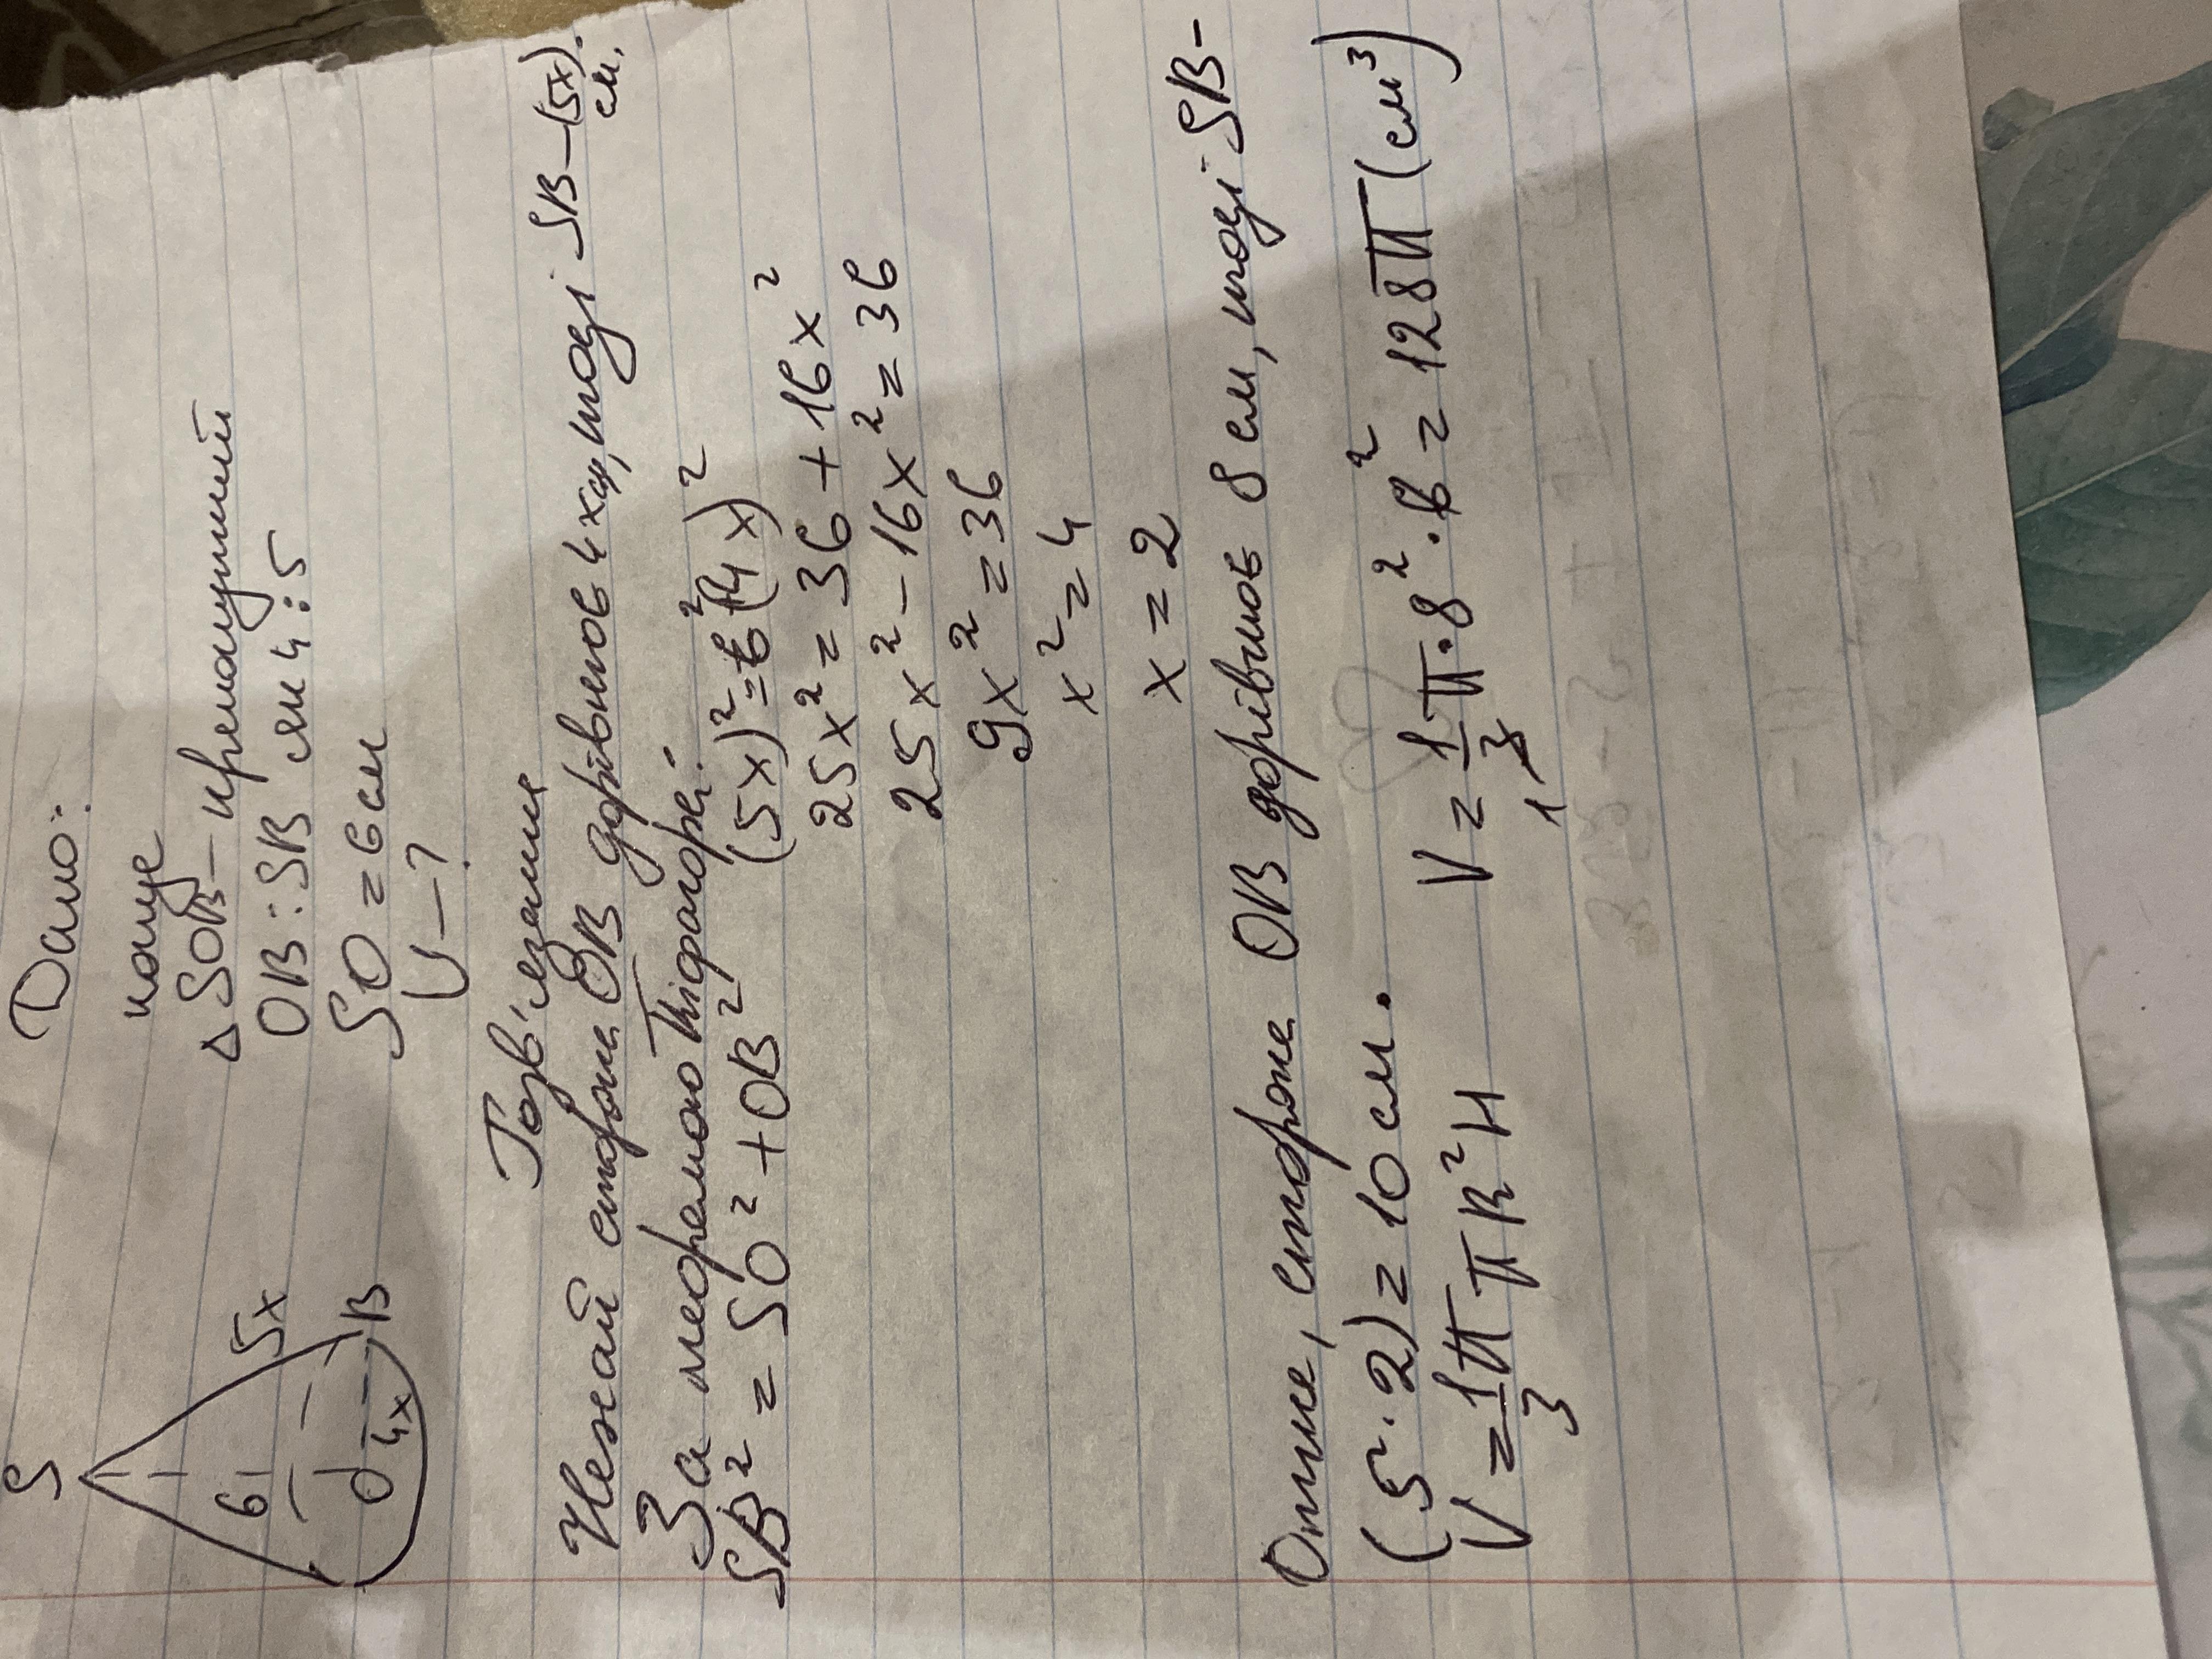 S
6
5x
O
4x
B
Дано:
конус
△SOB – прямокутний
OB : SB як 4 : 5
SO = 6 см
V – ?
Розв'язання
Нехай сторона OB дорівнює 4x см, тоді SB – (5x) см.
За теоремою Піфагора:
SB² = SO² + OB²
(5x)² = 6² + (4x)²
25x² = 36 + 16x²
25x² – 16x² = 36
9x² = 36
x² = 4
x = 2
Отже, сторона OB дорівнює 8 см, тоді SB –
(5 · 2) = 10 см.
V = 1/3 π π R² H
V = 1/3 π · 8² · 6 = 128π (см³)
1
2